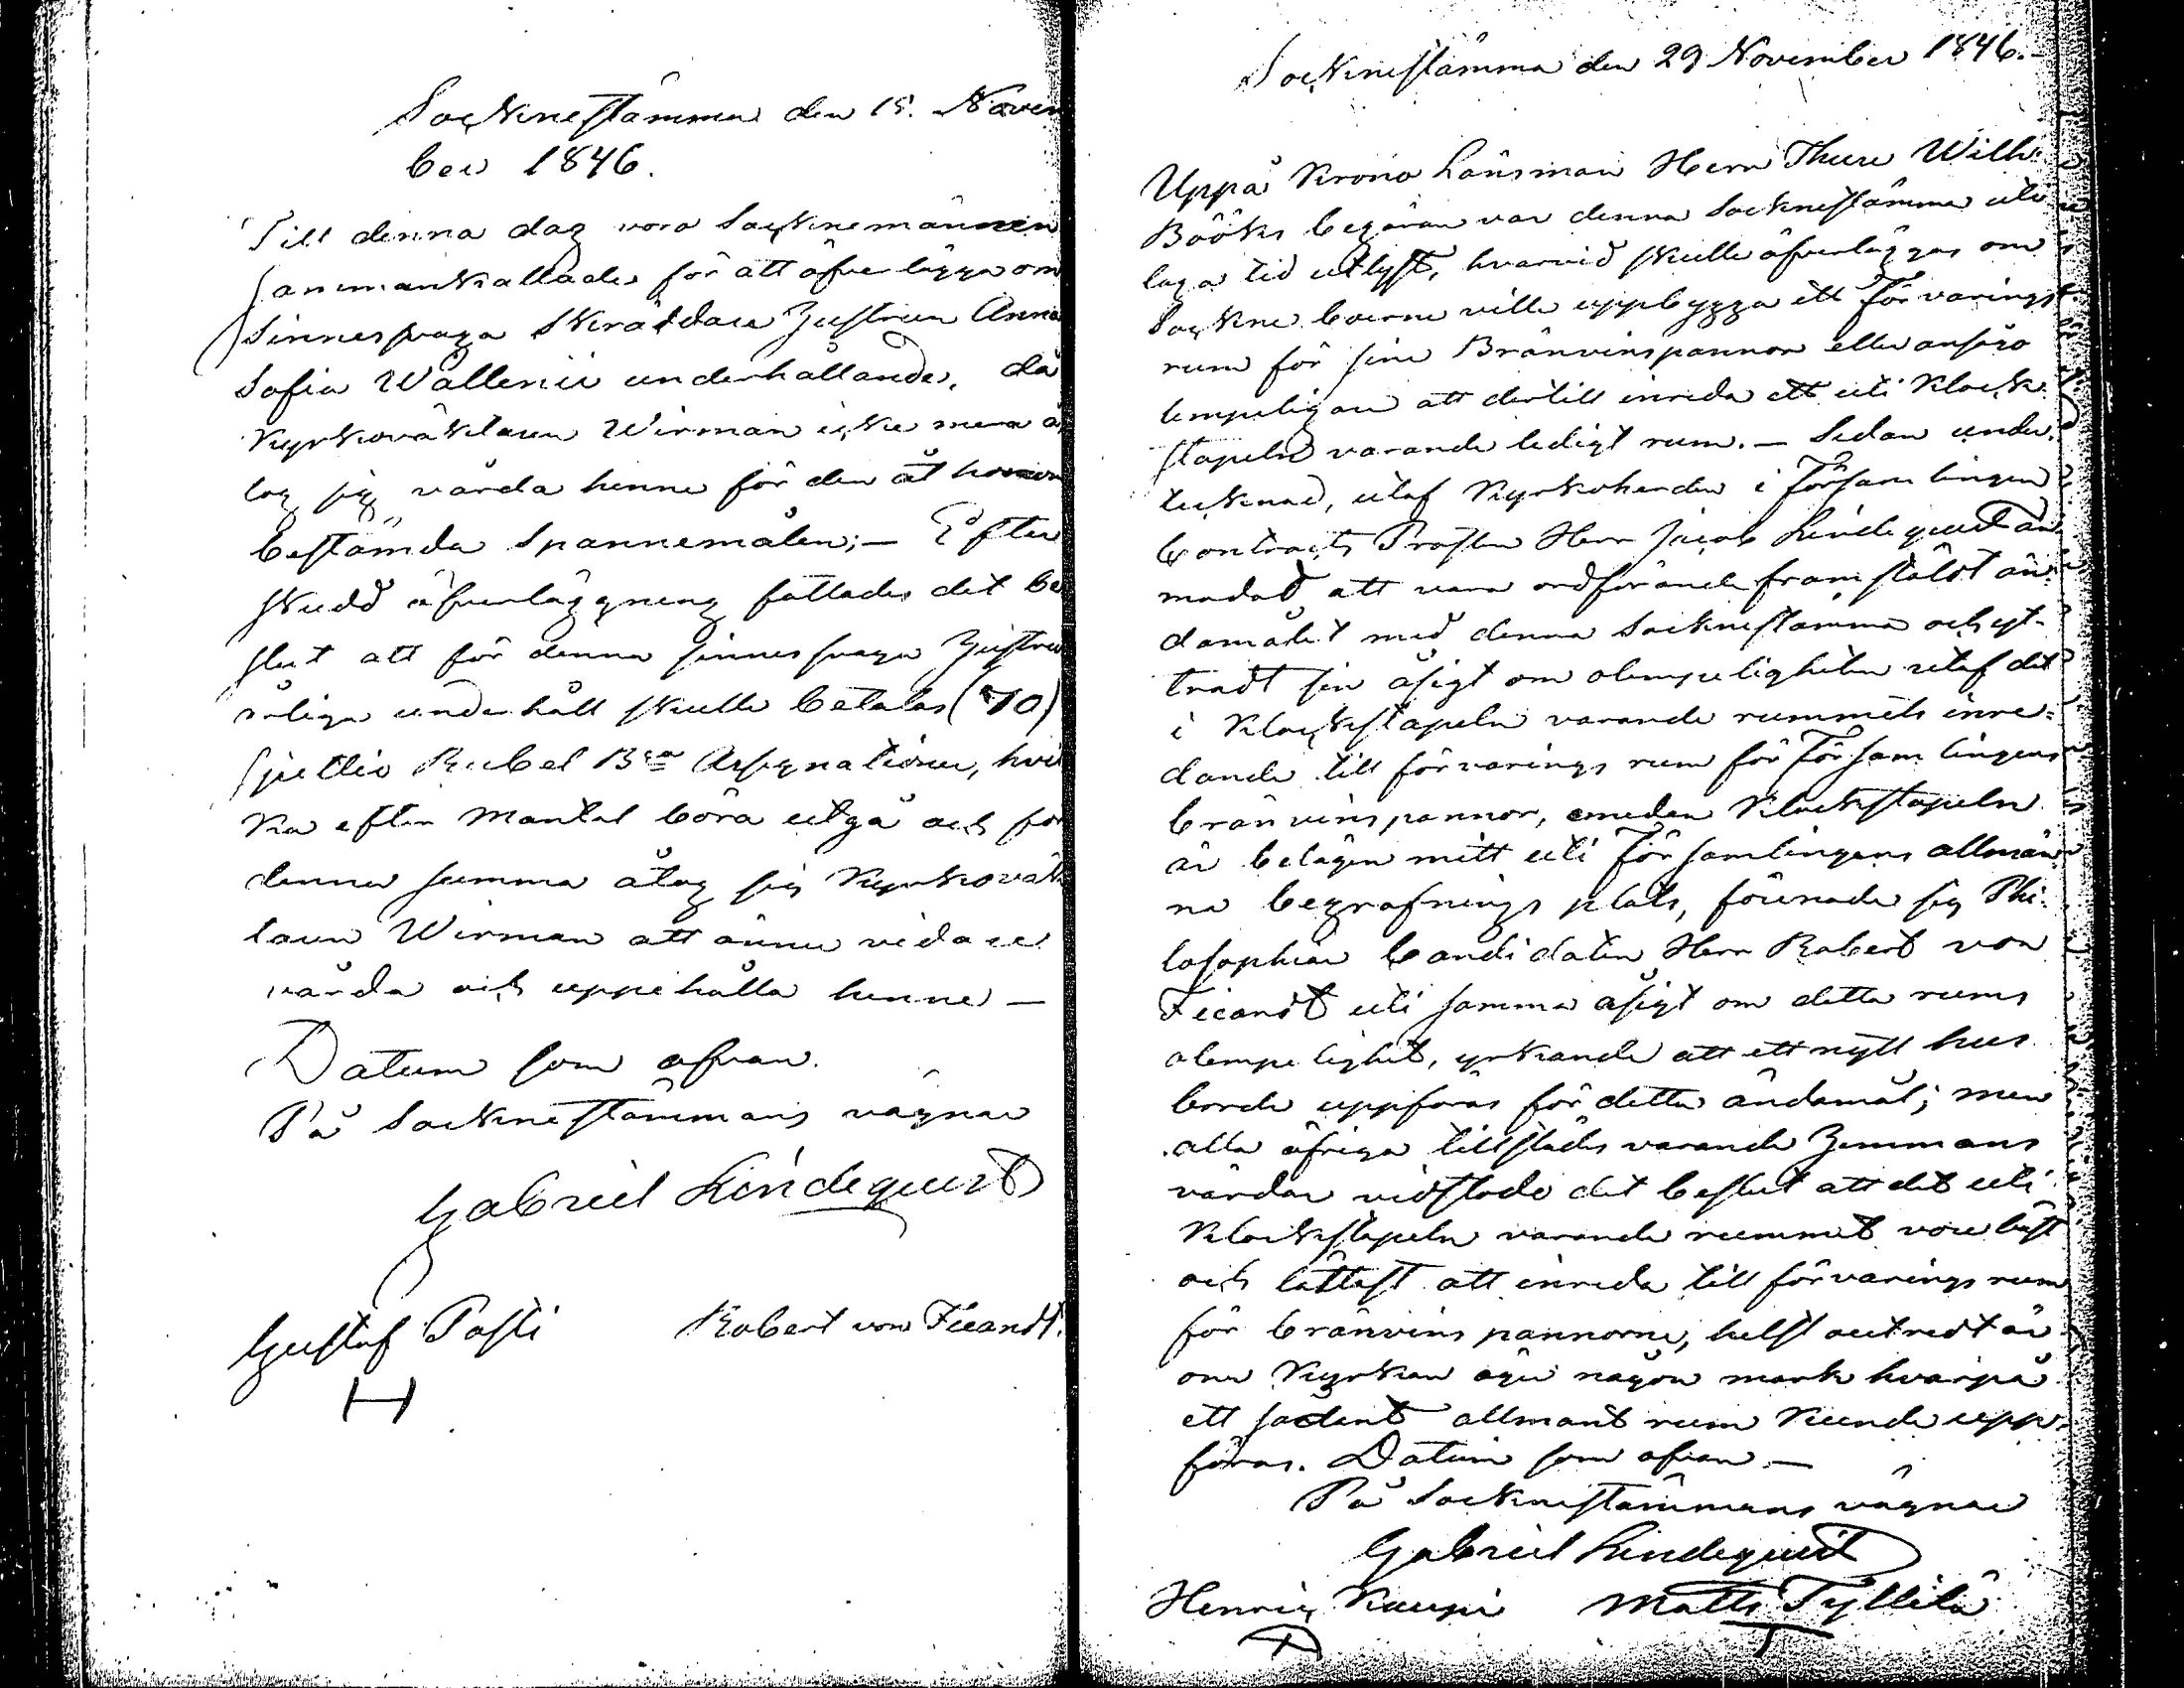 Socknestämma den 15. Novem
ber 1846.
Till denna dag voro Socknemännen
sammankallade för att öfverlägga om
Sinnessvaga Skräddare Hustrun Anna
Sofia Wallenii underhållande, då
Kyrkoväktaren Wirman icke mera å
tog sig vårda henne för den åt honom
bestämda Spannemålen; — Efter
skedd öfverläggning fattades det be
slut att för denna sinnessvaga Hustru
årliga underhåll skulle betalas (70)
sjuttio Rubel B:co Assignationer, hvil
ka efter Mantal böra utgå och för
denna summa åtog sig Kyrkoväk
taren Wirman att ännu vidare
vårda och uppehålla henne —
Datum som ofvan.
På Socknestämmans vägnar
Gabriel Lindequist
Gustaf Pasti Robert von Fieandt.
Socknestämma den 29 November 1846. —
Uppå Krono Länsman Herr Thure Wilh.
Bööks begäran var denna Socknestämma uti
laga tid utlyst, hvarvid skulle öfverläggas om
Sockne boerne ville uppbygga ett Förvarings
rum för sine Bränvinspannor eller anse
lempeligare att dertill inreda ett uti Klock
stapeln varande ledigt rum. — Sedan under
tecknad, utaf Kyrkoherden i Församlingen
Contracts Prosten Herr Jacob Lindequist an
modad att vara ordförande framstäldt än
damålet med denna Socknestämma och yt-
tradt sin åsigt om olempeligheten utaf det
i Klockstapeln varande rummets inre=
dande till förvarings rum för Församlingens
bränvinspannor, emedan Klockstapeln
är belägen mitt uti Församlingens allmän
na begrafnings plats, förenade sig Phi
losophiæ Candidaten Herr Robert von
Fieandt uti samma åsigt om detta rums
olempelighet, yrkande att ett nytt hus
borde uppföras för detta ändamål; men
alla öfriga tillstädes varande Hemmans
värdar vidstodo det beslut att det uti
Klockstapeln varande rummet vore bäst
och lättast att inreda till förvarings rum
för bränvins pannorne, helst outredt är
om Kyrkan äger någon mark hvarpå
ett sådant allmänt rum kunde upp
föras. Datum som ofvan —
På Socknestämmans vägnar
Gabriel Lindequist
Henric Kaupi Matts Tyllilä